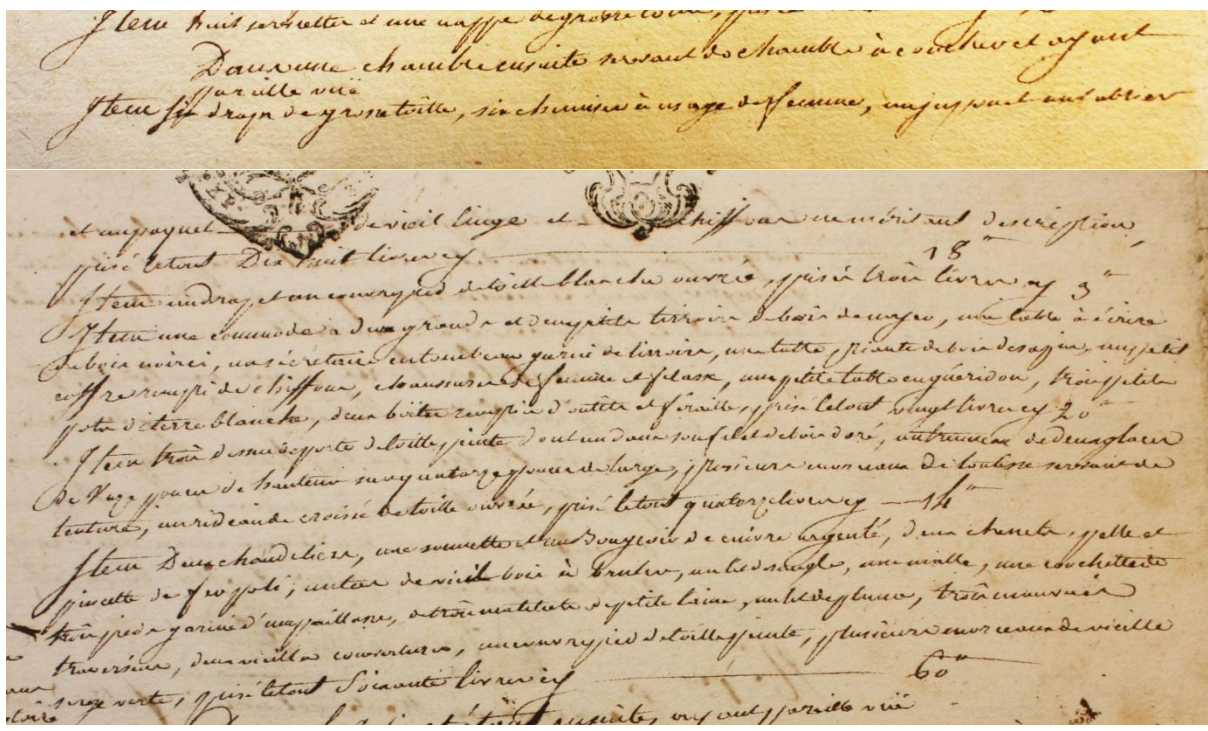 Item huit serviettes et une nappe de grosse toille, prisé
Dans une chambre ensuite servant de chambre à coucher et ayant
pareille vüe
Item six draps de grosse toille, six chemises à usage de femme, un jupon et
et un paquet de vieil linge et chiffons ne méritant description,
prisé le tout Dix huit livres cy 18"
Item un drap et un couvrepied de toille blanche ouvrée, prisés trois livres cy 3"
Item une commode à deux grands et deux petits tirroirs de bois de noyer, une table à écrire
de bois noirci, un sécrétaire en tombeau garni de tirroirs, une table, pliante de bois de sapin, un petit
coffre rempli de chiffons, chaussures de femme et filasse, une petite table en guéridon, trois petits
pots de terre blanche, deux boîtes remplies d'outils et féraille, prisé le tout vingt livres cy 20"
Item trois dessus de porte de toille peinte dont un dans son filet de bois doré, un trumeau de deux glaces
de onze pouces de hauteur sur quatorze pouces de large, plusieurs morceaux de
 servant de
tenture, un rideau de croisée de toille ouvrée, prisé le tout quatorze livres cy 14"
Item Deux chandeliers, une sonnette et un Bougeoir de cuivre argenté, deux chenets, pelle et
pincette de fer poli, un tas de vieil bois à bruler, un lit de sangle, une malle, une couchette de
trois pieds garnie d'une paillasse, de trois matelats de petite laine, un lit de plume, trois mauvais
traversins, deux vieilles couvertures, un couvrepied de toille peinte, plusieurs morceaux de vieille
serge verte, prisé le tout Soixante livres cy 60"
ensuite, ayant pareille vüe